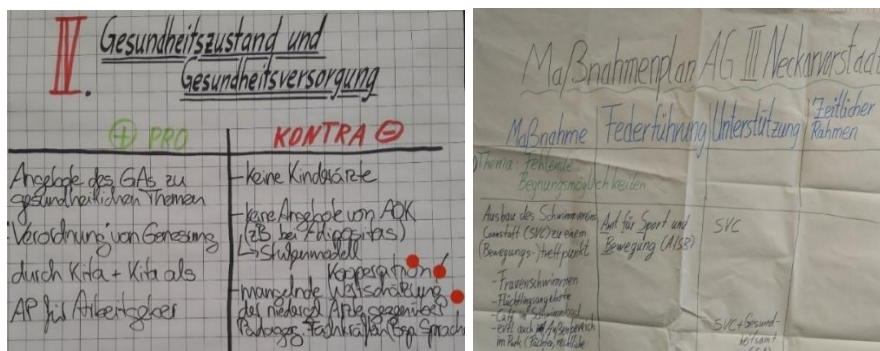 IV. Gesundheitszustand und
Gesundheitsversorgung
⊕ PRO
Angebote des GAs zu
gesundheitlichen Themen
Verordnung von Genesung
durch Kita + Kita als
AP für Arbeitgeber
KONTRA ⊖
- keine Kinderärzte
- keine Angebote von AOK
(zB bei Adipositas)
↳ Stufenmodell
Kooperation /
- mangelnde Wertschätzung
der niedergel. Ärzte gegenüber
Pädagog. Fachkräften Bsp. Sprach
Maßnahmenplan AG III Neckarvorstadt
Maßnahme Federführung Unterstützung Zeitlicher
Rahmen
Thema: Fehlende
Begnungsmöglichkeiten
Ausbau des Schwimmvereins
Cannstatt (SVC) zu einem
(Bewegungs-)treffpunkt
- Frauenschwimmen
- Flüchtlingsangebote
- Café Schwimmbad
- evtl. auch Außenbereich
im Park
Amt für Sport und
Bewegung (AfSB)
SVC
SVC + Gesund-
heitsamt